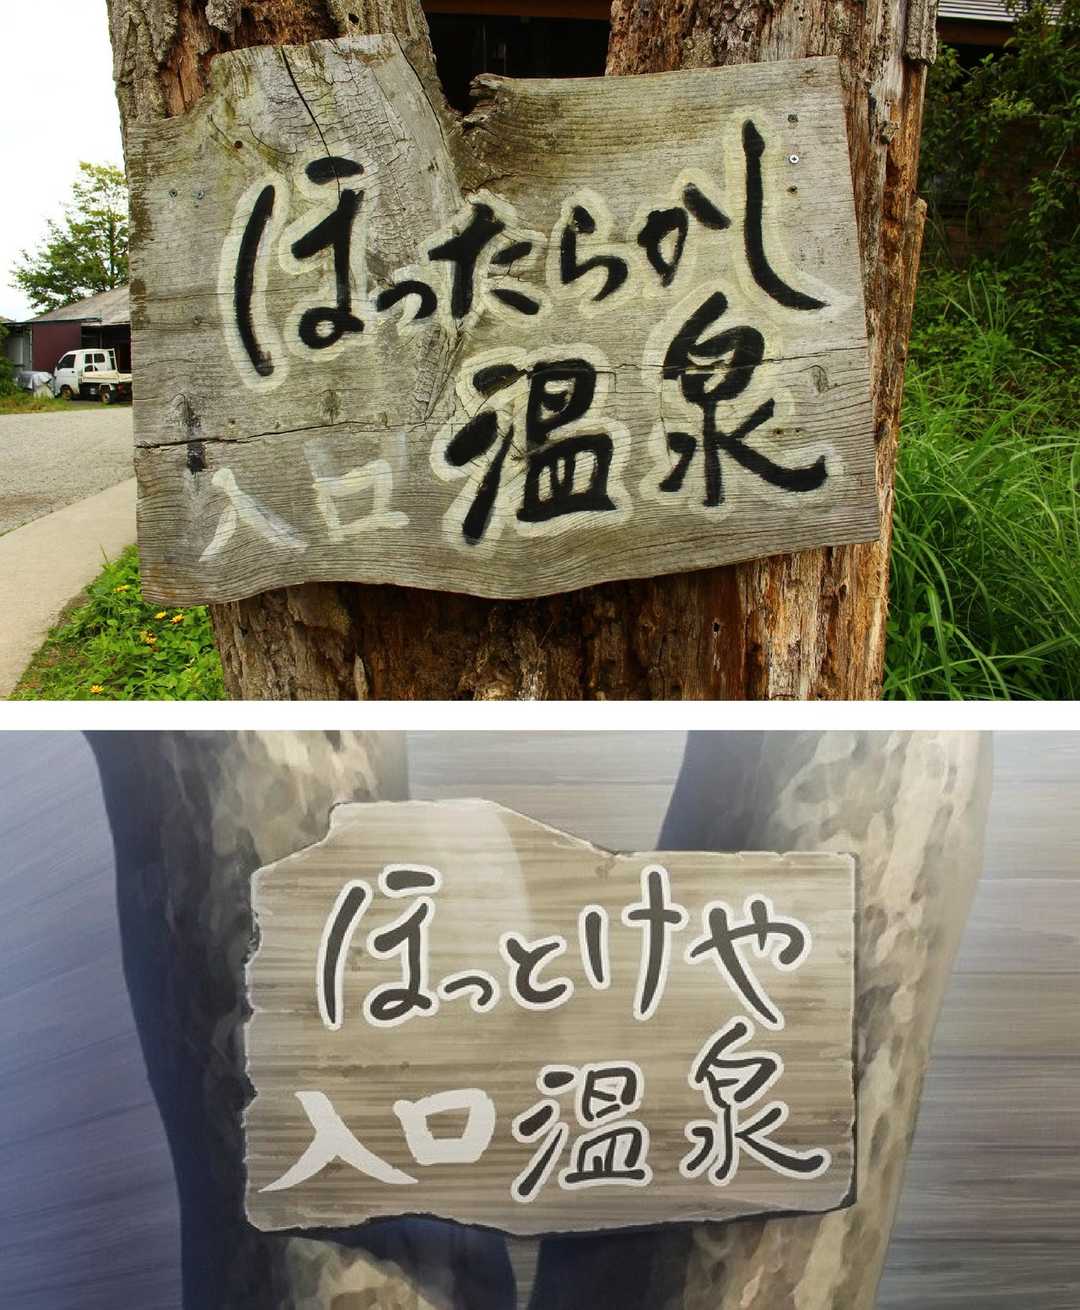 ほったらかし
温泉
入口
ほっとけや
入口 温泉